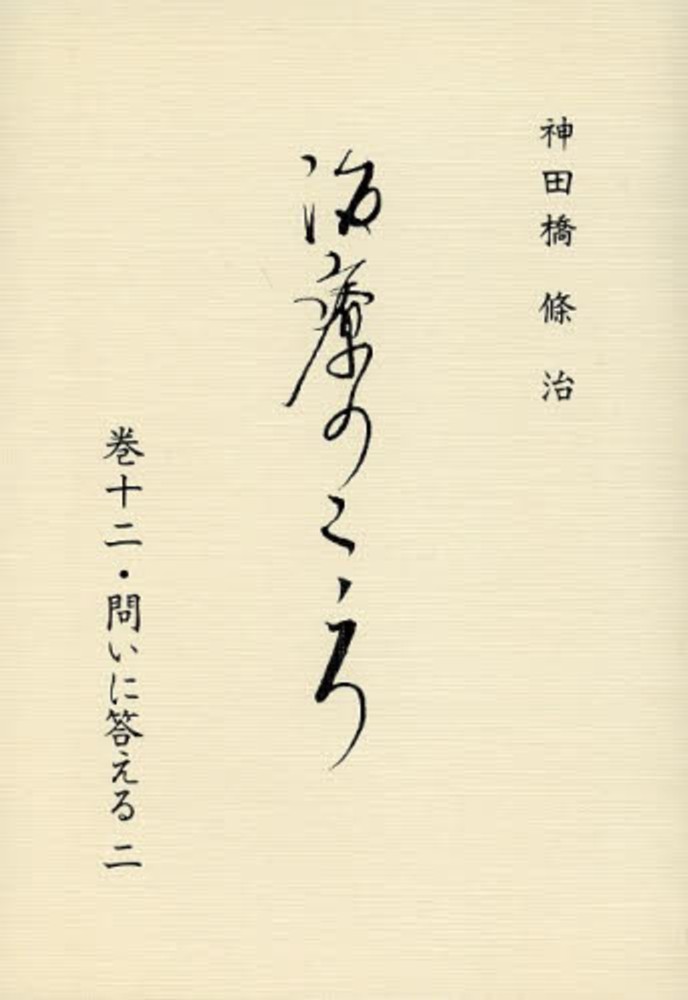 神田橋 條治
治療のこゝろ
巻十二・問いに答える 二